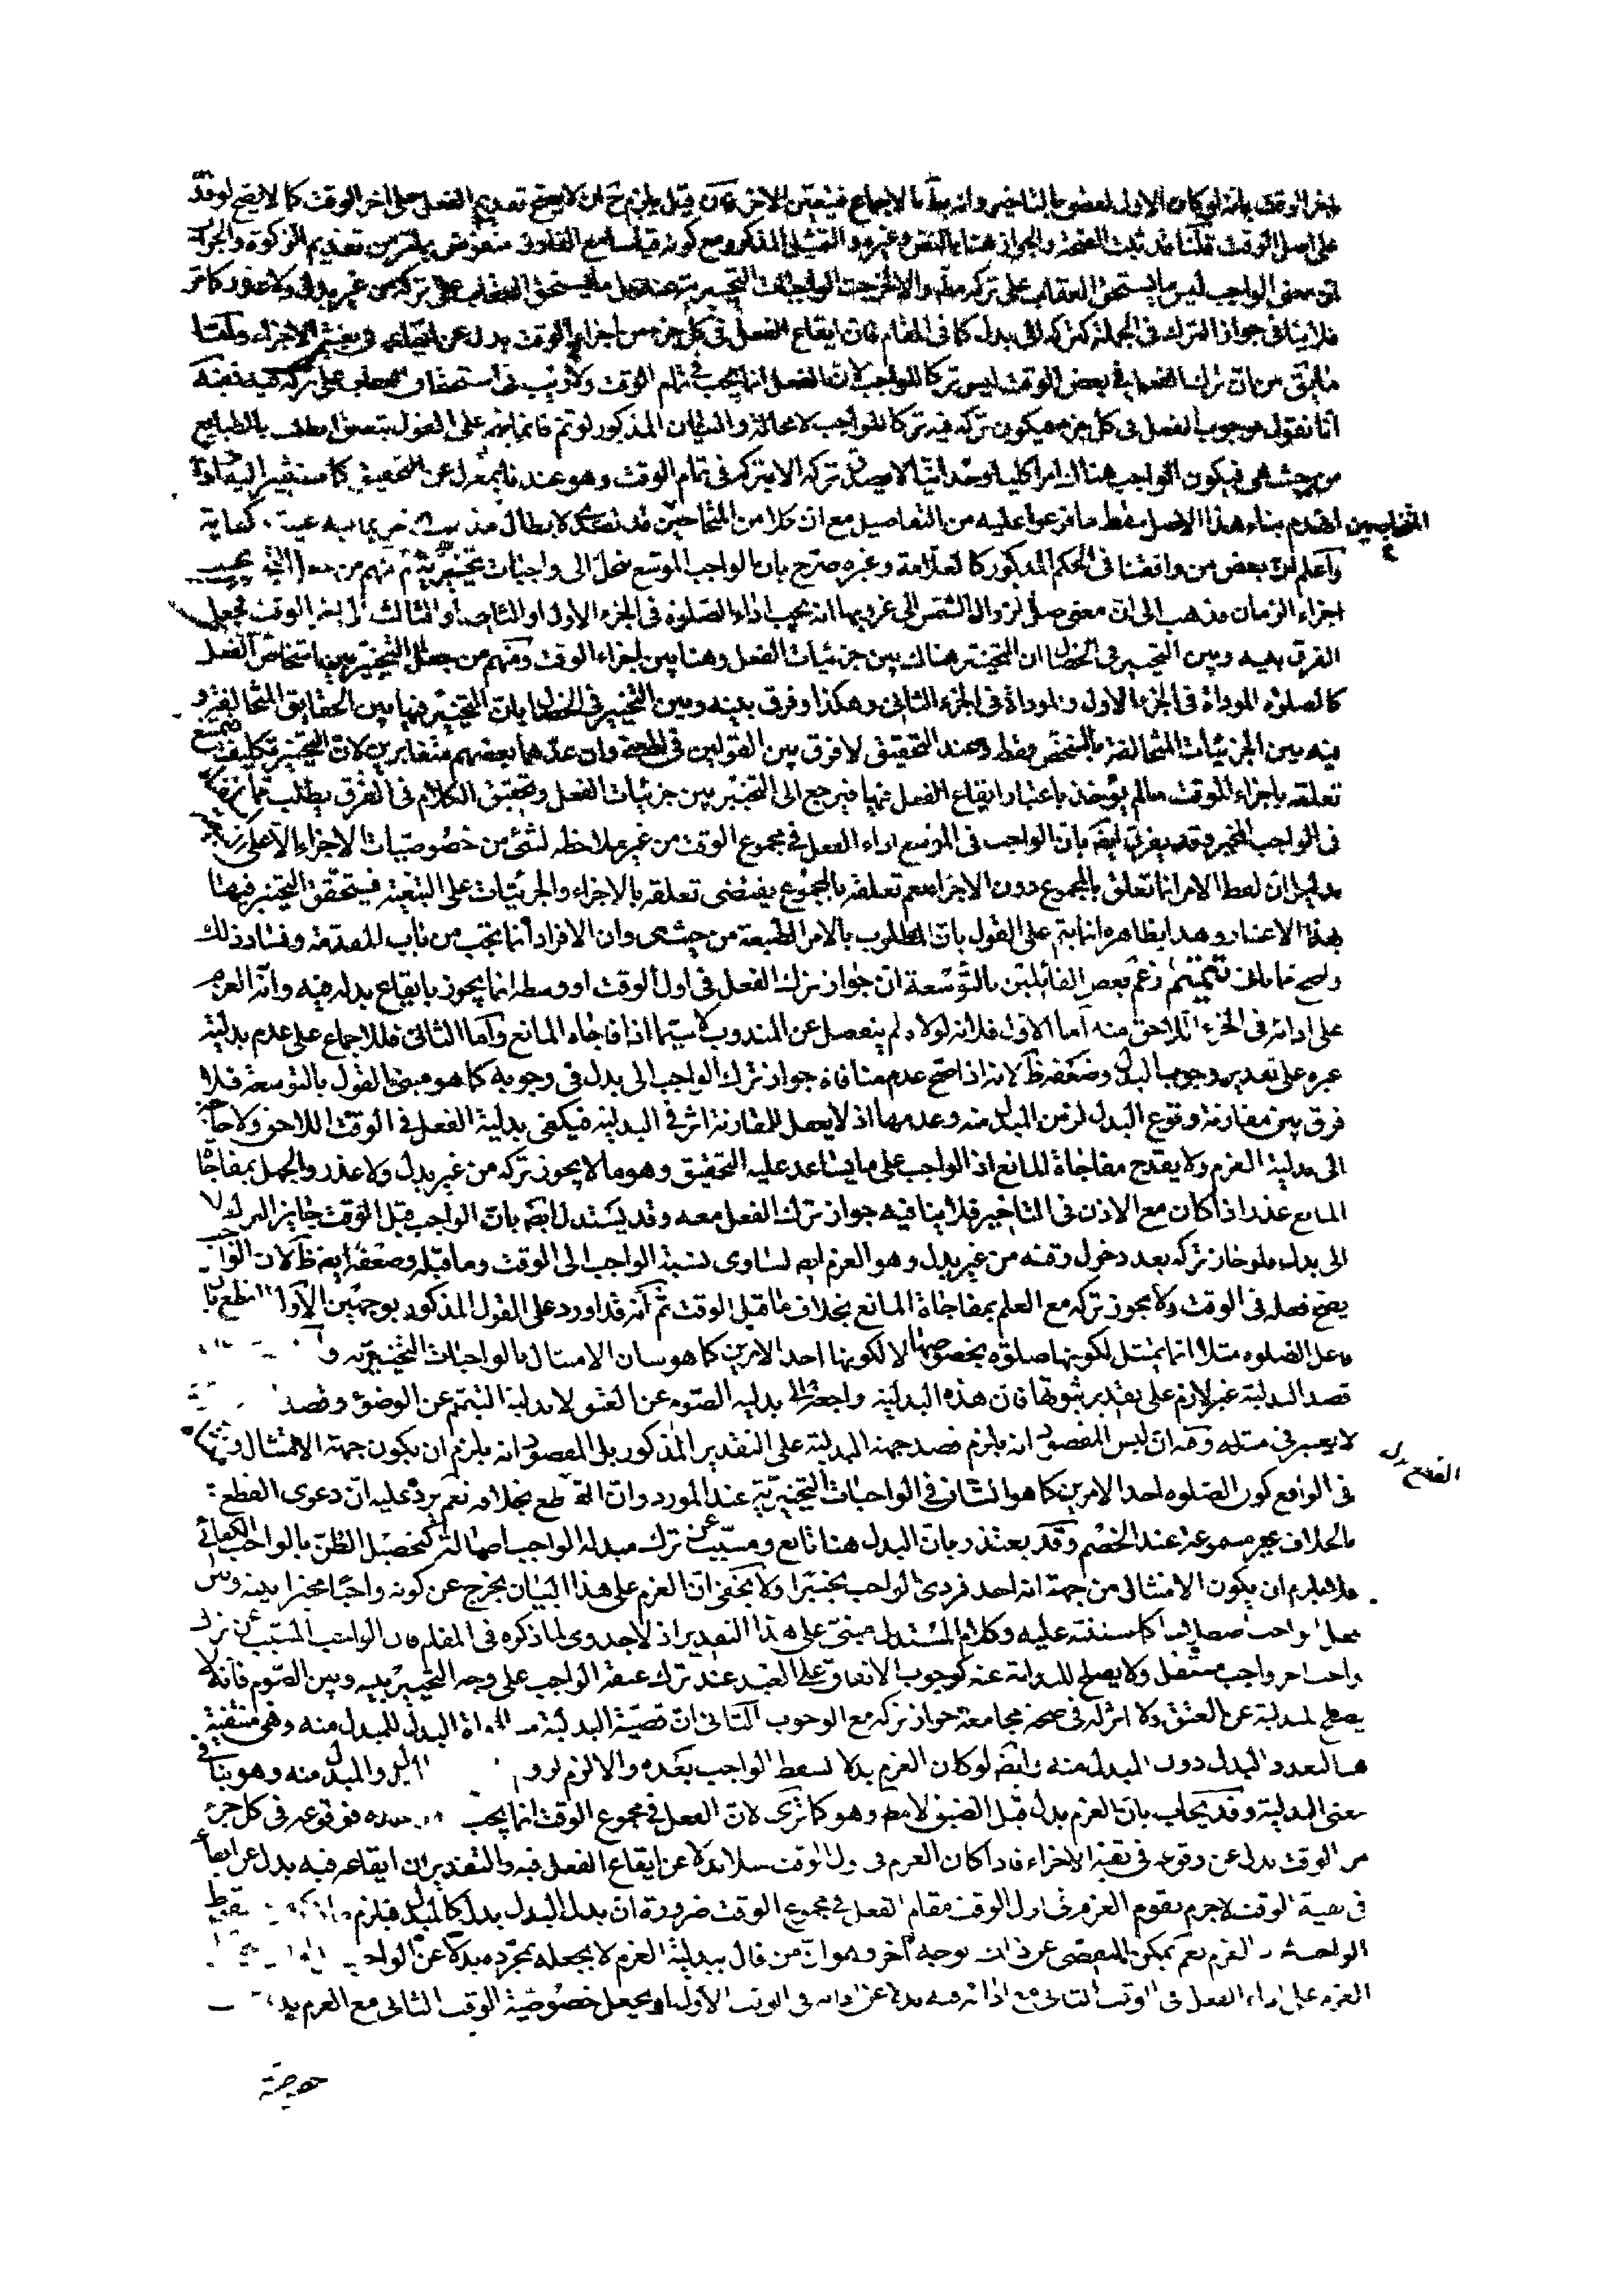 باخر الوقت بانه لو كان الاول لعصى بالتاخير وانه بط بالاجماع فيتعين الاخر فان قيل يلزم ح ان لا يصح تقديم الفعل على اخر الوقت كما لا يصح لو قدم
على اصل الوقت قلنا قد ثبت الصحة والجواز هنا بالنص وغيره والتمثيل المذكور مع كونه قياسا مع الفارق منقوض بما تقرر من تقديم الزكوة والجواب
ان معنى الواجب ليس ما يستحق العقاب على تركه مط والا لخرجت الواجبات التخييرية عنه بل ما يستحق العقاب على تركه من غير بدل ولا عذر كما مر
فلا ينافى جواز الترك فى الجملة كتركه الى بدل كما فى المقام فان ايقاع الفعل فى كل جزء من اجزاء الوقت بدل عن ايقاعه فى بقية الاجزاء واما
من ان ترك الفعل فى بعض الوقت ليس تركا للواجب لان الفعل انما يجب فى تمام الوقت ولا ريب فى استحقاق العقاب على تركه فيه ففيه
انا نقول بوجوب الفعل فى كل جزء فيكون تركه فيه تركا للواجب لا محالة والبيان المذكور لو تم فانما يتم على القول بتعلق الطلب بالطبايع
من حيث هى فيكون الواجب هناك امرا كليا وحدانيا لا يصدق تركه الا بتركه فى تمام الوقت وهو عندنا بمعزل عن التحقيق كما سنشير اليه واذا
انهدم بناء هذا الاصل سقط ما فرعوا عليه من التفاصيل مع ان كلا من المتخاصمين قد تصدى لابطال مذهب الاخر بما فيه غنية وكفاية
واعلم ان بعض من وافقنا فى الحكم المذكور كالعلامة وغيره صرح بان الواجب الموسع ينحل الى واجبات تخييرية ثم منهم من جعل التخيير بحسب
اجزاء الزمان فذهب الى ان معنى صل لزوال الشمس الى غروبها انه يجب اداء الصلوة فى الجزء الاول او الثانى او الثالث الى اخر الوقت فجعل
الفرق بينه وبين التخيير فى الخصال ان التخيير هناك بين جزئيات الفعل وهنا بين اجزاء الوقت ومنهم من جعل التخيير بين اشخاص الفعل
كالصلوة المؤداة فى الجزء الاول والمؤداة فى الجزء الثانى وهكذا وفرق بينه وبين التخيير فى الخصال بان التخيير فيها بين الحقايق المتخالفة و
فيه بين الجزئيات المتخالفة بالشخص فقط وعند التحقيق لا فرق بين القولين فى الجملة وان عدهما بعضهم متغايرين لان التخيير تكليف فيمتنع
تعلقه باجزاء الوقت ما لم يؤخذ باعتبار ايقاع الفعل فيها فيرجع الى التخيير بين جزئيات الفعل وتحقيق الكلام فى الفرق يطلب مما
فى الواجب المخير وقد يفرق ايضا بان الواجب فى الموسع اداء الفعل فى مجموع الوقت من غير ملاحظة لشئ من خصوصيات الاجزاء
بدليل ان لفظ الامر انما تعلق بالمجموع دون الاجزاء نعم تعلقه بالمجموع يقتضى تعلقه بالاجزاء والجزئيات على التبعية فيتحقق التخيير فيها
بهذا الاعتبار وهذا بظاهره انما يتم على القول بان المطلوب بالامر الطبيعة من حيث هى وان الافراد انما يجب من باب المقدمة وفساد ذلك
واضح مما بان تتميم زعم بعض القائلين بالتوسعة ان جواز ترك الفعل فى اول الوقت او وسطه انما يجوز بايقاع بدله فيه وانه العزم
على ادائه فى الجزء اللاحق منه اما الاول فلانه لولاه لم ينفصل عن المندوب لا سيما اذا فاجاه المانع واما الثانى فللاجماع على عدم بدلية
غيره على تقدير وجوب البدل وضعفه ظ لانه اذا صح عدم منافاة جواز ترك الواجب الى بدل فى وجوبه كما هو مبنى القول بالتوسعة فلا
فرق بين مقارنة وقوع البدل لزمن المبدل منه وعدمها اذ لا يعقل للمقارنة اثر فى البدلية فيكفى بدلية الفعل فى الوقت اللاحق ولا حاجة
الى بدلية العزم ولا يقدح مفاجاة المانع اذ الواجب على ما يساعد عليه التحقيق وهو ما لا يجوز تركه من غير بدل ولا عذر والجهل بمفاجاة
المانع عذر اذا كان مع الاذن فى التاخير فلا ينافيه جواز ترك الفعل معه وقد يستدل ايضا بان الواجب قبل الوقت جايز الترك لا
الى بدل فلو جاز تركه بعد دخول وقته من غير بدل وهو العزم ايضا لتساوى نسبة الواجب الى الوقت وما قبله وضعفه ايضا ظ لان الواجب
يصح فعله فى الوقت ولا يجوز تركه مع العلم بمفاجاة المانع بخلاف ما قبل الوقت ثم انه قد اورد على القول المذكور بوجهين الاول القطع بان
فاعل الصلوة مثلا انما يمتثل لكونها صلوة بخصوصها لا لكونها احد الامرين كما هو شان الامتثال بالواجبات التخييرية و
قصد البدلية غير لازم على تقدير ثبوتها فان هذه البدلية راجعة الى بدلية الصوم عن العتق لا بدلية التيمم عن الوضوء وقصد
لا يعتبر فى مثله وفيه ان ليس المقصود انه يلزم قصد جهة البدلية على التقدير المذكور بل المقصود انه يلزم ان يكون جهة الامتثال
فى الواقع كون الصلوة احد الامرين كما هو الشان فى الواجبات التخييرية عند المورد وان القطع بخلافه نعم يرد عليه ان دعوى القطع
بالخلاف غير مسموعة عند الخصم وقد يعتذر بان البدل هنا تابع ومسبب عن ترك مبدله الواجب اصالة كتحصيل الظن بالواجب الكفائى
فلا يلزم ان يكون الامتثال من جهة انه احد فردى الواجب تخييرا ولا يخفى ان العزم على هذا البيان يخرج عن كونه واجبا مخيرا بينه وبين
فعل الواجب كما سننبه عليه وكلام المستدل مبنى على هذا التقدير اذ لا جدوى لما ذكره فى المقام فان الواجب المسبب عن ترك
واجب اخر واجب مستقل ولا يصلح للبدلية عنه كوجوب الانفاق على العبد عند ترك عتقه الواجب على وجه التخيير بينه وبين الصوم فانه لا
يصلح لبدلية عن العتق ولا اثر له فى صحة مجامعة جواز تركه مع الوجوب الثانى ان قضية البدلية مساواة البدل للمبدل منه وهى منتفية
هنا لتعدد البدل دون المبدل منه وايضا لو كان العزم بدلا لسقط الواجب بعده والا لزم البدل والمبدل منه وهو ينافى
معنى البدلية وقد يجاب بان العزم بدل قبل الضيق لا مط وهو كما ترى لان الفعل فى مجموع الوقت انما يجب فوقوعه فى كل جزء
من الوقت بدل عن وقوعه فى بقية الاجزاء فاذا كان العزم فى اول الوقت مثلا بدلا عن ايقاع الفعل فيه والتقدير ان ايقاعه فيه بدل عن ايقاعه
فى بقية الوقت لا جرم يقوم العزم فى اول الوقت مقام الفعل فى مجموع الوقت ضرورة ان بدل البدل بدل كالمبدل فيلزم
الواجب بالعزم نعم يمكن التفصى عن ذلك بوجه اخر وهو ان من قال ببدلية العزم لا يجعله بمجرده بدلا عن الواجب
العزم على اداء الفعل فى الوقت الثانى مع ادائه فيه بدلا عن ادائه فى الوقت الاول او يجعل خصوصية الوقت الثانى مع العزم